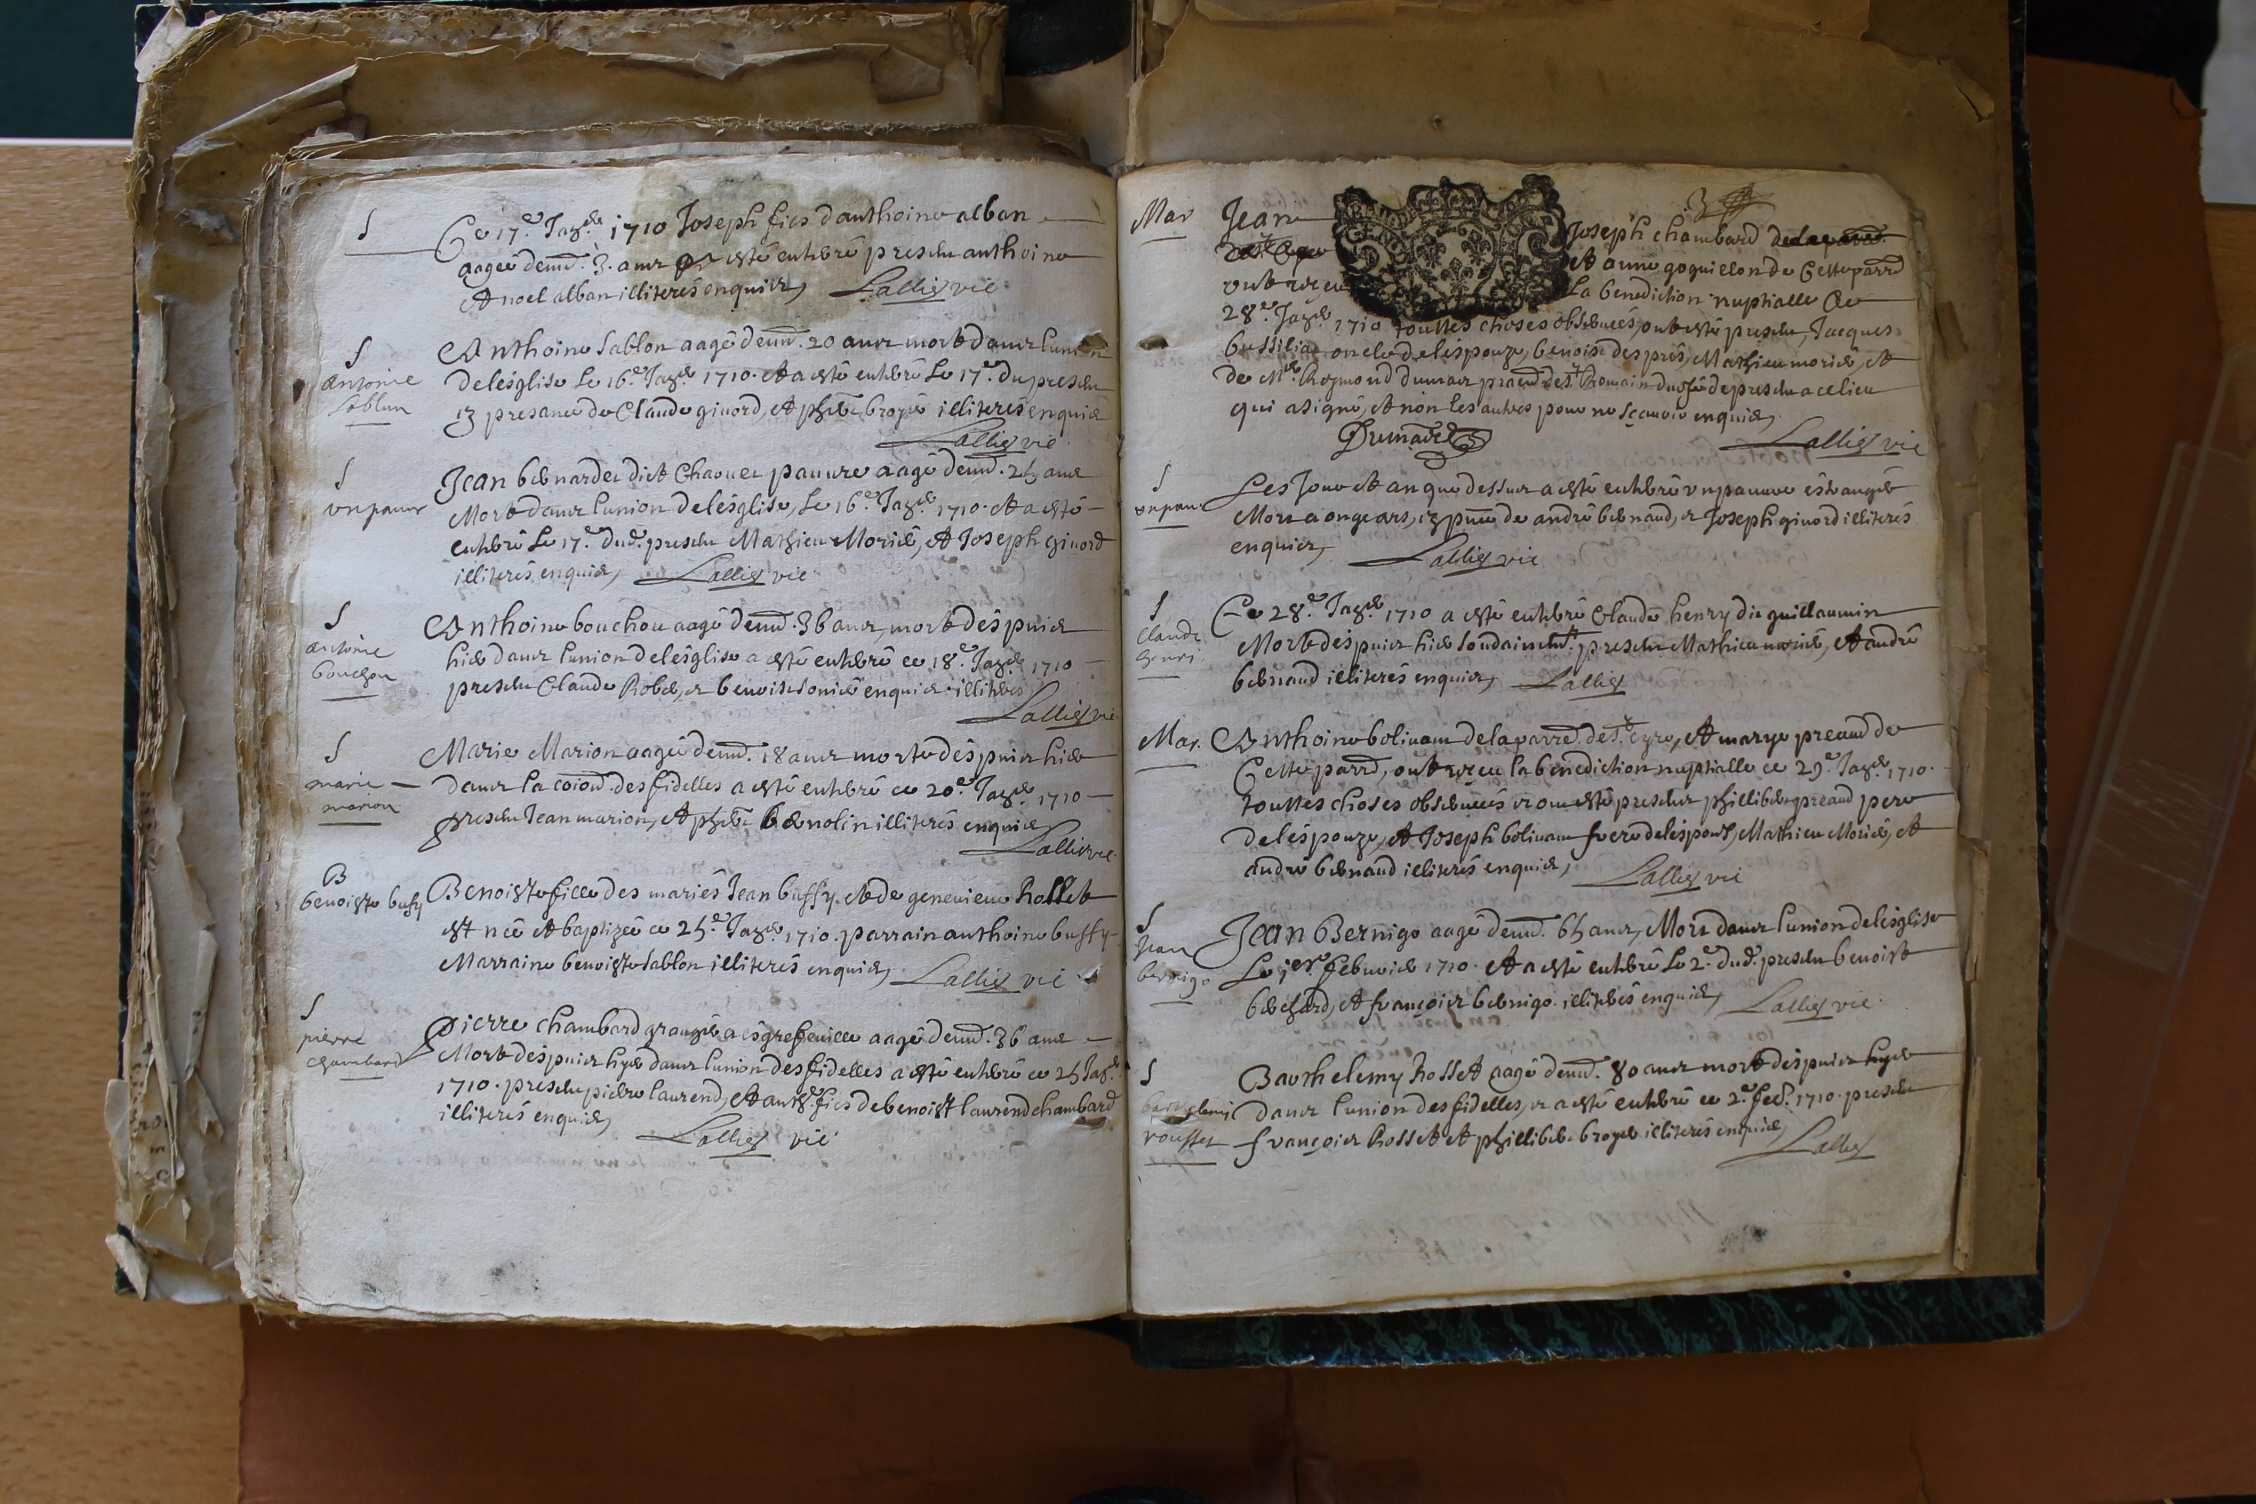 S
Ce 17e Jazer 1710 Joseph fils d'anthoine alban
aagé d'envd. 3. ans a esté enterré presen anthoine
et noel alban illiterés enquis, Lallier vic
S
antoine
sablon
Anthoine sablon aagé d'envd. 20 ans mort dans l'union
de l'esglise Le 16e Jazer 1710. et a esté enterré Le 17e du presen
en presance de Claude givord, et phbe broyé illiterés enquis
Lallier vic
S
un pauvr
Jean bernardet dict Chaouet pauvre aagé d'envd. 25 ans
Mort dans l'union de l'esglise, Le 16e Jazer 1710. et a esté
enterré Le 17e dud. presen Mathieu Morier, et Joseph givord
illiterés enquis, Lallier vic
S
antoine
bouchou
Anthoine bouchou aagé d'envd. 36 ans, mort despuis
hier dans l'union de l'esglise a esté enterré ce 18e Jazer 1710
presen Claude Rober, et benoist sonier enquis illiteres
Lallier vic
S
marie
marion
Marie Marion aagée d'envd. 18 ans morte despuis hier
dans la coiond. des fidelles a esté enterré ce 20e Jazer 1710
presen Jean marion, et phbe bernolin illiterés enquis
Lallier vic
B
benoiste bufy
Benoiste fille des mariés Jean buffy et de genevieve Rollet
est née et baptizée ce 25e Jazer 1710. parrain anthoine buffy
Marraine benoiste sablon illiterés enquis, Lallier vic
S
pierre
chambard
Pierre chambard granger a esgrefeuille aagé d'envd. 36 ans
Mort despuis hyer dans l'union des fidelles a esté enterré ce 25 Jazer
1710. presen pierre laurend, et anthe fils de benoist laurend chambard
illiterés enquis, Lallier vic
3
Mar Jean Joseph chambard
et anne goquillon de Cette parrd
ont reçeu La benediction nuptialle Ce
28e Jazer 1710 touttes choses observées, ont esté presen, Jacques
bussilia oncle de l'espouze, benoist després, Mathieu morier, et
de Mre Reymond dumas
qui a signé, et non les autres pour ne sçavoir enquis,
Dumas Lallier vic
S
un pauv
Les Jour et an que dessus a esté enterré un pauvre estranger
Mort a ongears, en pnce de andré bernaud, et Joseph givord illiterés
enquis, Lallier vic
S
claude
henri
Ce 28e Jazer 1710 a esté enterré Claude henry dit guillaumin
Mort despuis hier soudainemt. presen Mathieu morier, et andré
bernaud illiterés enquis, Lallier
Mar. Anthoine bolivam de la parrd. de St. Cyre, et marye preaud de
Cette parrd, ont reçeu la benediction nuptialle ce 29e Jazer 1710.
touttes choses observées et ont esté presen phillibert preaud pere
de l'espouze, et Joseph bolivam frere de l'espoux, Mathieu Morier, et
andré bernaud illiterés enquis, Lallier vic
S
Jean
bernigo
Jean Bernigo aagé d'envd. 65 ans, Mort dans l'union de l'esglise
Le 1er febvrier 1710. et a esté enterré Le 2e dud. presen benoist
berchard, et françois bernigo illiterés enquis, Lallier vic
S
bartelemi
rousset
Barthelemy Rosset aagé d'envd. 80 ans mort despuis hyer
dans l'union des fidelles, et a esté enterré ce 2e feb. 1710. presen
françois Rosset et phillibert broyer illiterés enquis,
Lallier